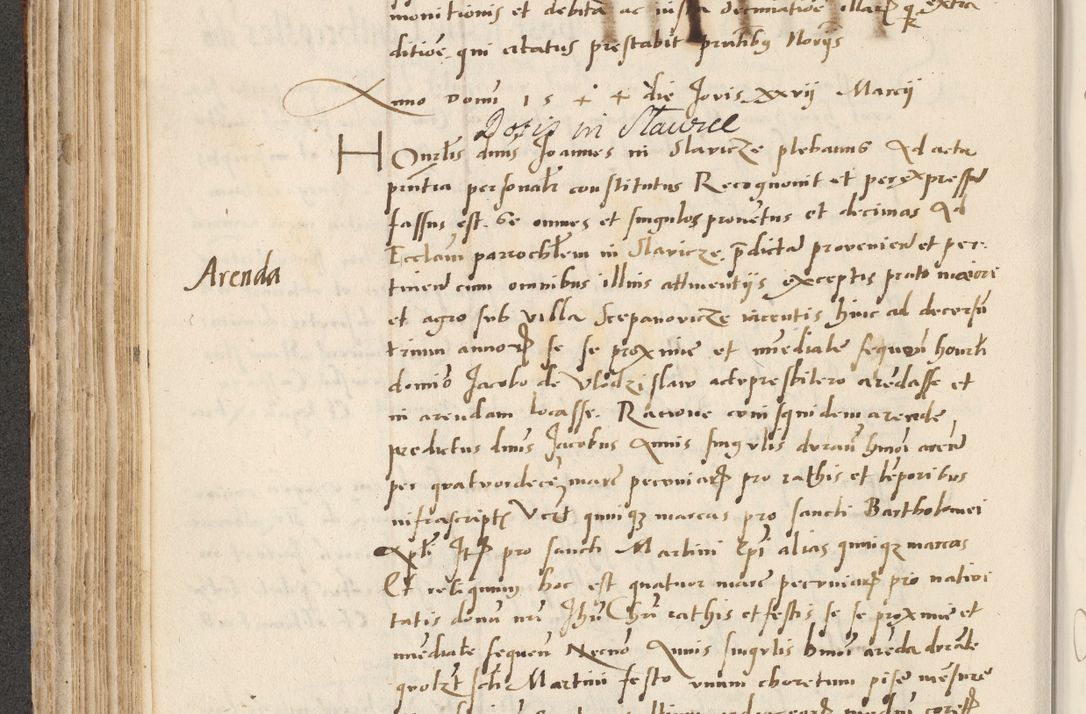 monitionis et debita ac iusta
ditioe qui citatus prestabit pntibus Noriis
Anno Domi 1 5 4 4 die Jovis xxvii Marcii
Dotis in Stawice
Honrlis dnus Joannes in Slavicze plebanus Ad acta
pntia personalr constitutus Recognovit et per expressum
fassus est. Se omnes et singulos proventus et decimas Ad
Ecclam parrochlem in Slavicze pdicta provenien et per
Arenda
tinen cum omnibus illius attinentiis exceptis prato maiori
et agro sub villa Scepanovicze iacentis hinc ad decursu
trium annor se se proxime et immediate sequen honorli
domio Jacobo de Vlodzislaw actu presbitero arendasse et
in arendam locasse. Racione cuiusquidem arende
predictus dnus Jacobus Annis singulis duran hmoi aren
per quatuordecem marc pecuniar pro rathis et temporibus
infrascript Vert quinq marcas pro sancti Bartholomei
Apli Itp pro sancti Martini Epi alias quinq marcas
Et reliquum hoc est quatuor marc pecuniar pro nativi
tatis domi nri Jhu Chri rathis et festis se se proxime et
imediate sequen Necno Annis singulis hmoi arenda durate
quolzt scti Martini festo unum choretum pise mensure